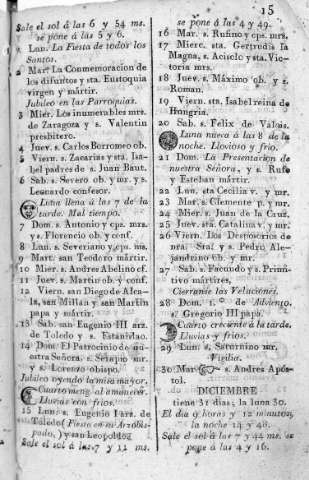 15
Sale el sol á las 6 y 54 ms.
se pone á las 5 y 6.
1 Lun. La Fiesta de todos los
Santos.
2 Mart. La Conmemoracion de
los difuntos y sta. Eustoquia
virgen y mártir.
Jubileo en las Parroquias.
3 Miér. Los inumerables mrs.
de Zaragoza y s. Valentin
presbitero.
4 Juev. s. Carlos Borromeo ob.
5 Viern. s. Zacarías y sta. Isa-
bel padres de s. Juan Baut.
6 Sab. s. Severo ob. y mr. y s.
Leonardo confesor.
Luna llena á las 7 de la
tarde. Mal tiempo.
7 Dom. s. Antonio y cps. mrs.
y s. Florencio ob. y conf.
8 Lun. s. Severiano y cps. ms.
9 Mart. san Teodoro mártir.
10 Mier. s. Andres Abelino cf.
11 Juev. s. Martin ob. y conf.
12 Viern. san Diego de Alca-
la, san Millan y san Martin
papa y mártir.
13 Sab. san Eugenio III arz.
de Toledo y s. Estanislao.
14 Dom. El Patrocinio de nu-
estra Señora. s. Serapio mr.
y s. Lorenzo obispo.
Jubileo oyendo la misa mayor.
Cuarto meng. al amanecer.
Lluvias con frios.
15 Luns. s. Eugenio I arz. de
Toledo (Fiesta en su Arzobis-
pado,) y san Leopoldo.
Sale el sol á las 7 y 11 ms.
se pone á las 4 y 49.
16 Mar. s. Rufino y cps. mrs.
17 Mierc. sta. Gertrudis la
Magna, s. Acisclo y sta. Vic-
toria mrs.
18 Juev. s. Máximo ob. y s.
Roman.
19 Viern. sta. Isabel reina de
Hungria.
20 Sab. s. Felix de Valois.
Luna nueva á las 8 de la
noche. Llovioso y frio.
21 Dom. La Presentacion de
nuestra Señora, y s. Rufo
y Esteban mártir.
22 Lun. sta Cecilia v. y mr.
23 Mar. s. Clemente p. y mr.
24 Mier. s. Juan de la Cruz.
25 Juev. sta. Catalina v. y mr.
26 Viern. Los Desposorios de
nra. Sra. y s. Pedro Ale-
jandrino ob. y mr.
27 Sab. s. Facundo y s. Primi-
tivo mártires.
Cierranse las Velaciones.
28 Dom. 1.º de Adviento.
s. Gregorio III papa.
Cuarto creciente á la tarde.
Lluvias y frios.
29 Lun. s. Saturnino mr.
Vigilia.
30 Mar. s. Andres Após-
tol.
DICIEMBRE
tiene 31 dias; la luna 30.
El dia 9 horas y 12 minutos,
la noche 14 y 48.
Sale el sol á las 7 y 44 ms. se
pone á las 4 y 16.